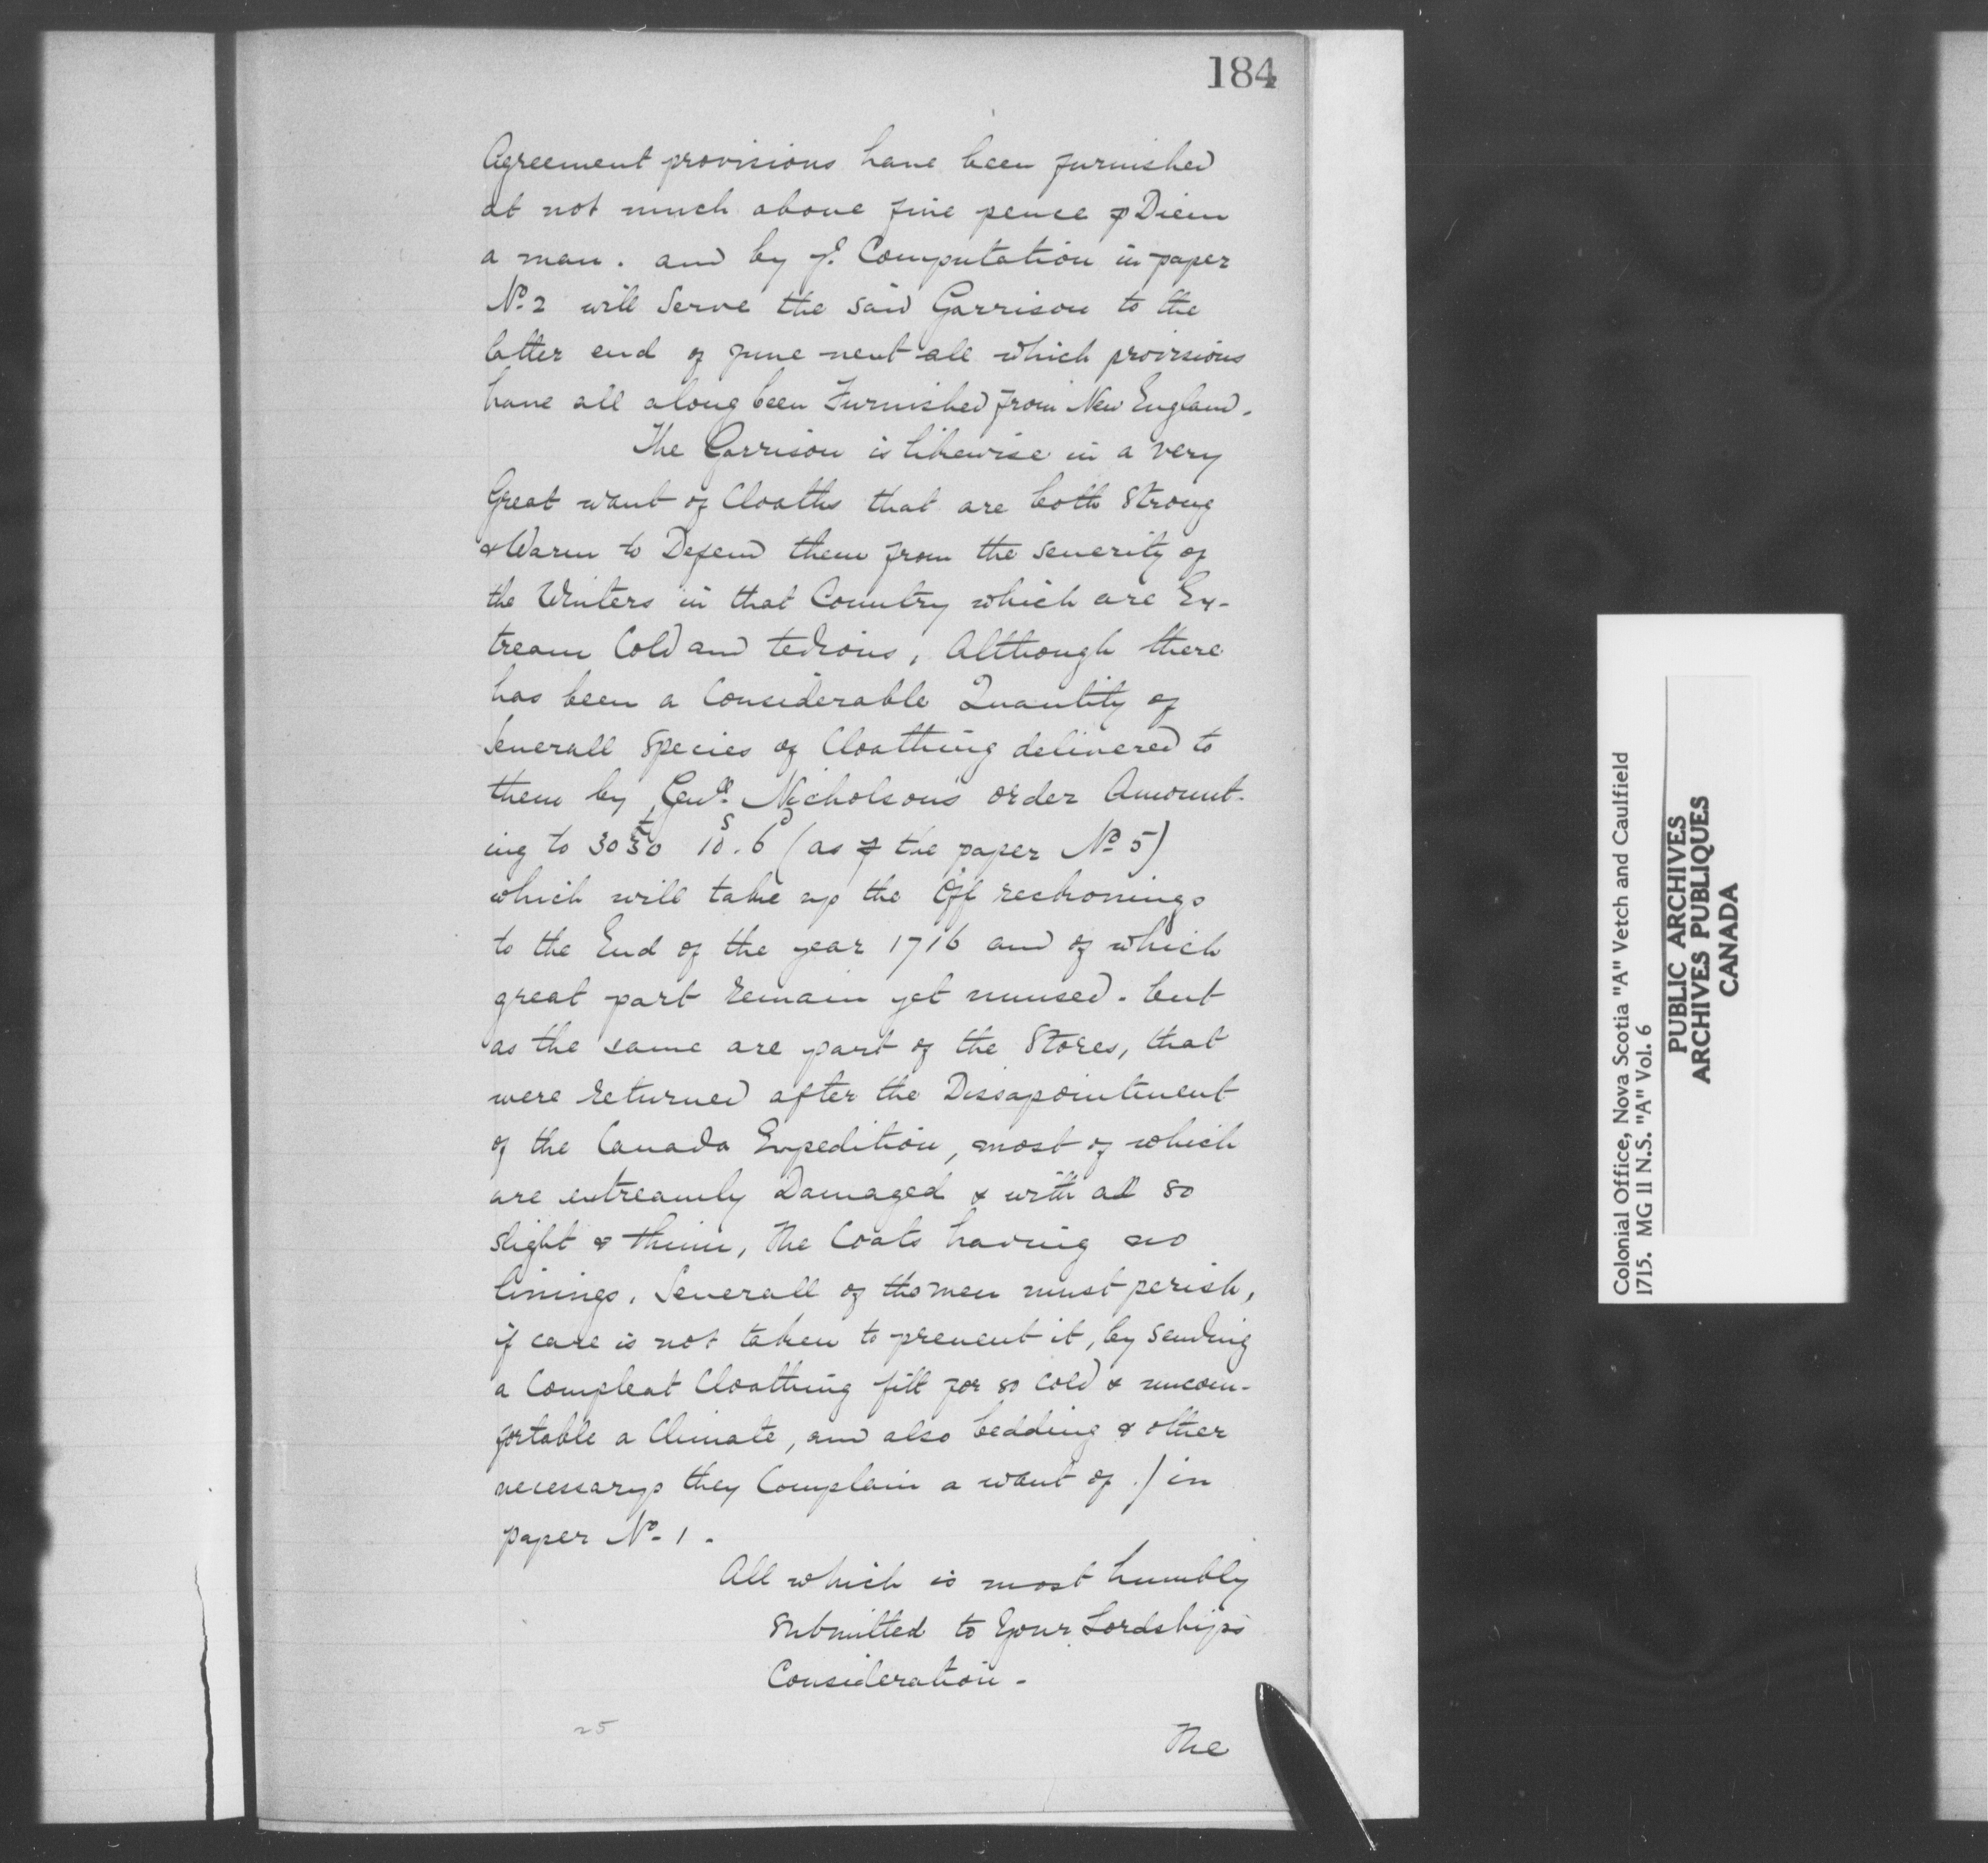 184
Agreement provisions have been furnished
at not much above five pence ⅌ Diem
a man. and by yᵉ Computation in paper
Nº 2 will Serve the said Garrison to the
latter end of June next all which provisions
have all along been Furnished from New England.
The Garrison is likewise in a very
Great want of Cloaths that are both Strong
& Warm to Defend them from the severity of
the Winters in that Country which are Ex-
tream Cold and tedious, Although there
has been a Considerable Quantity of
Severall Species of Cloathing delivered to
them by Genˡˡ Nicholsons order Amount-
ing to 3050£ 10ˢ. 6ᵈ (as ⅌ the paper Nº 5)
which will take up the Off reckonings
to the End of the year 1716 and of which
great part remain yet unused. but
as the same are part of the Stores, that
were returned after the Dissapointment
of the Canada Expedition, most of which
are extreamly Damaged & with al so
slight & thinn, The Coats having no
linings. Severall of the men must perish,
if care is not taken to prevent it, by sending
a Compleat Cloathing fitt for so cold & uncom-
fortable a Climate, and also bedding & other
necessarys they Complain a want of ./ in
paper Nº 1.
All which is most humbly
submitted to Your Lordships
Consideration.
25
The
Colonial Office, Nova Scotia "A" Vetch and Caulfield
1715. MG 11 N.S. "A" Vol. 6
PUBLIC ARCHIVES
ARCHIVES PUBLIQUES
CANADA